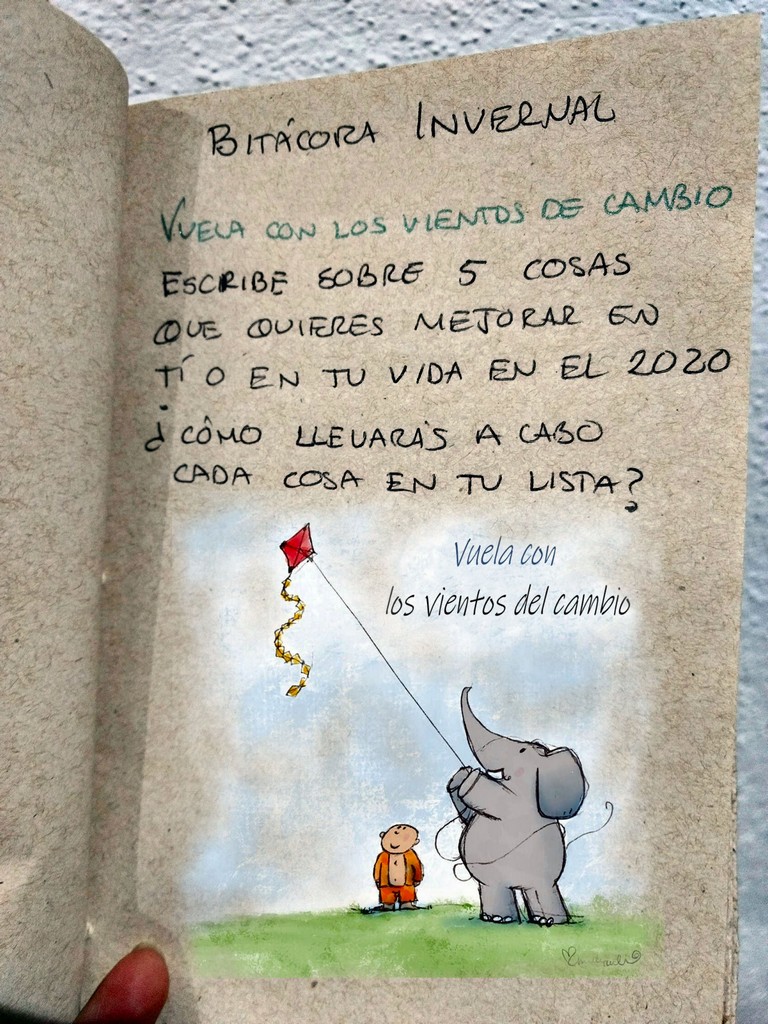 BITÁCORA INVERNAL
VUELA CON LOS VIENTOS DE CAMBIO
ESCRIBE SOBRE 5 COSAS
QUE QUIERES MEJORAR EN
TÍ O EN TU VIDA EN EL 2020
¿CÓMO LLEVARÁS A CABO
CADA COSA EN TU LISTA?
Vuela con
los vientos del cambio